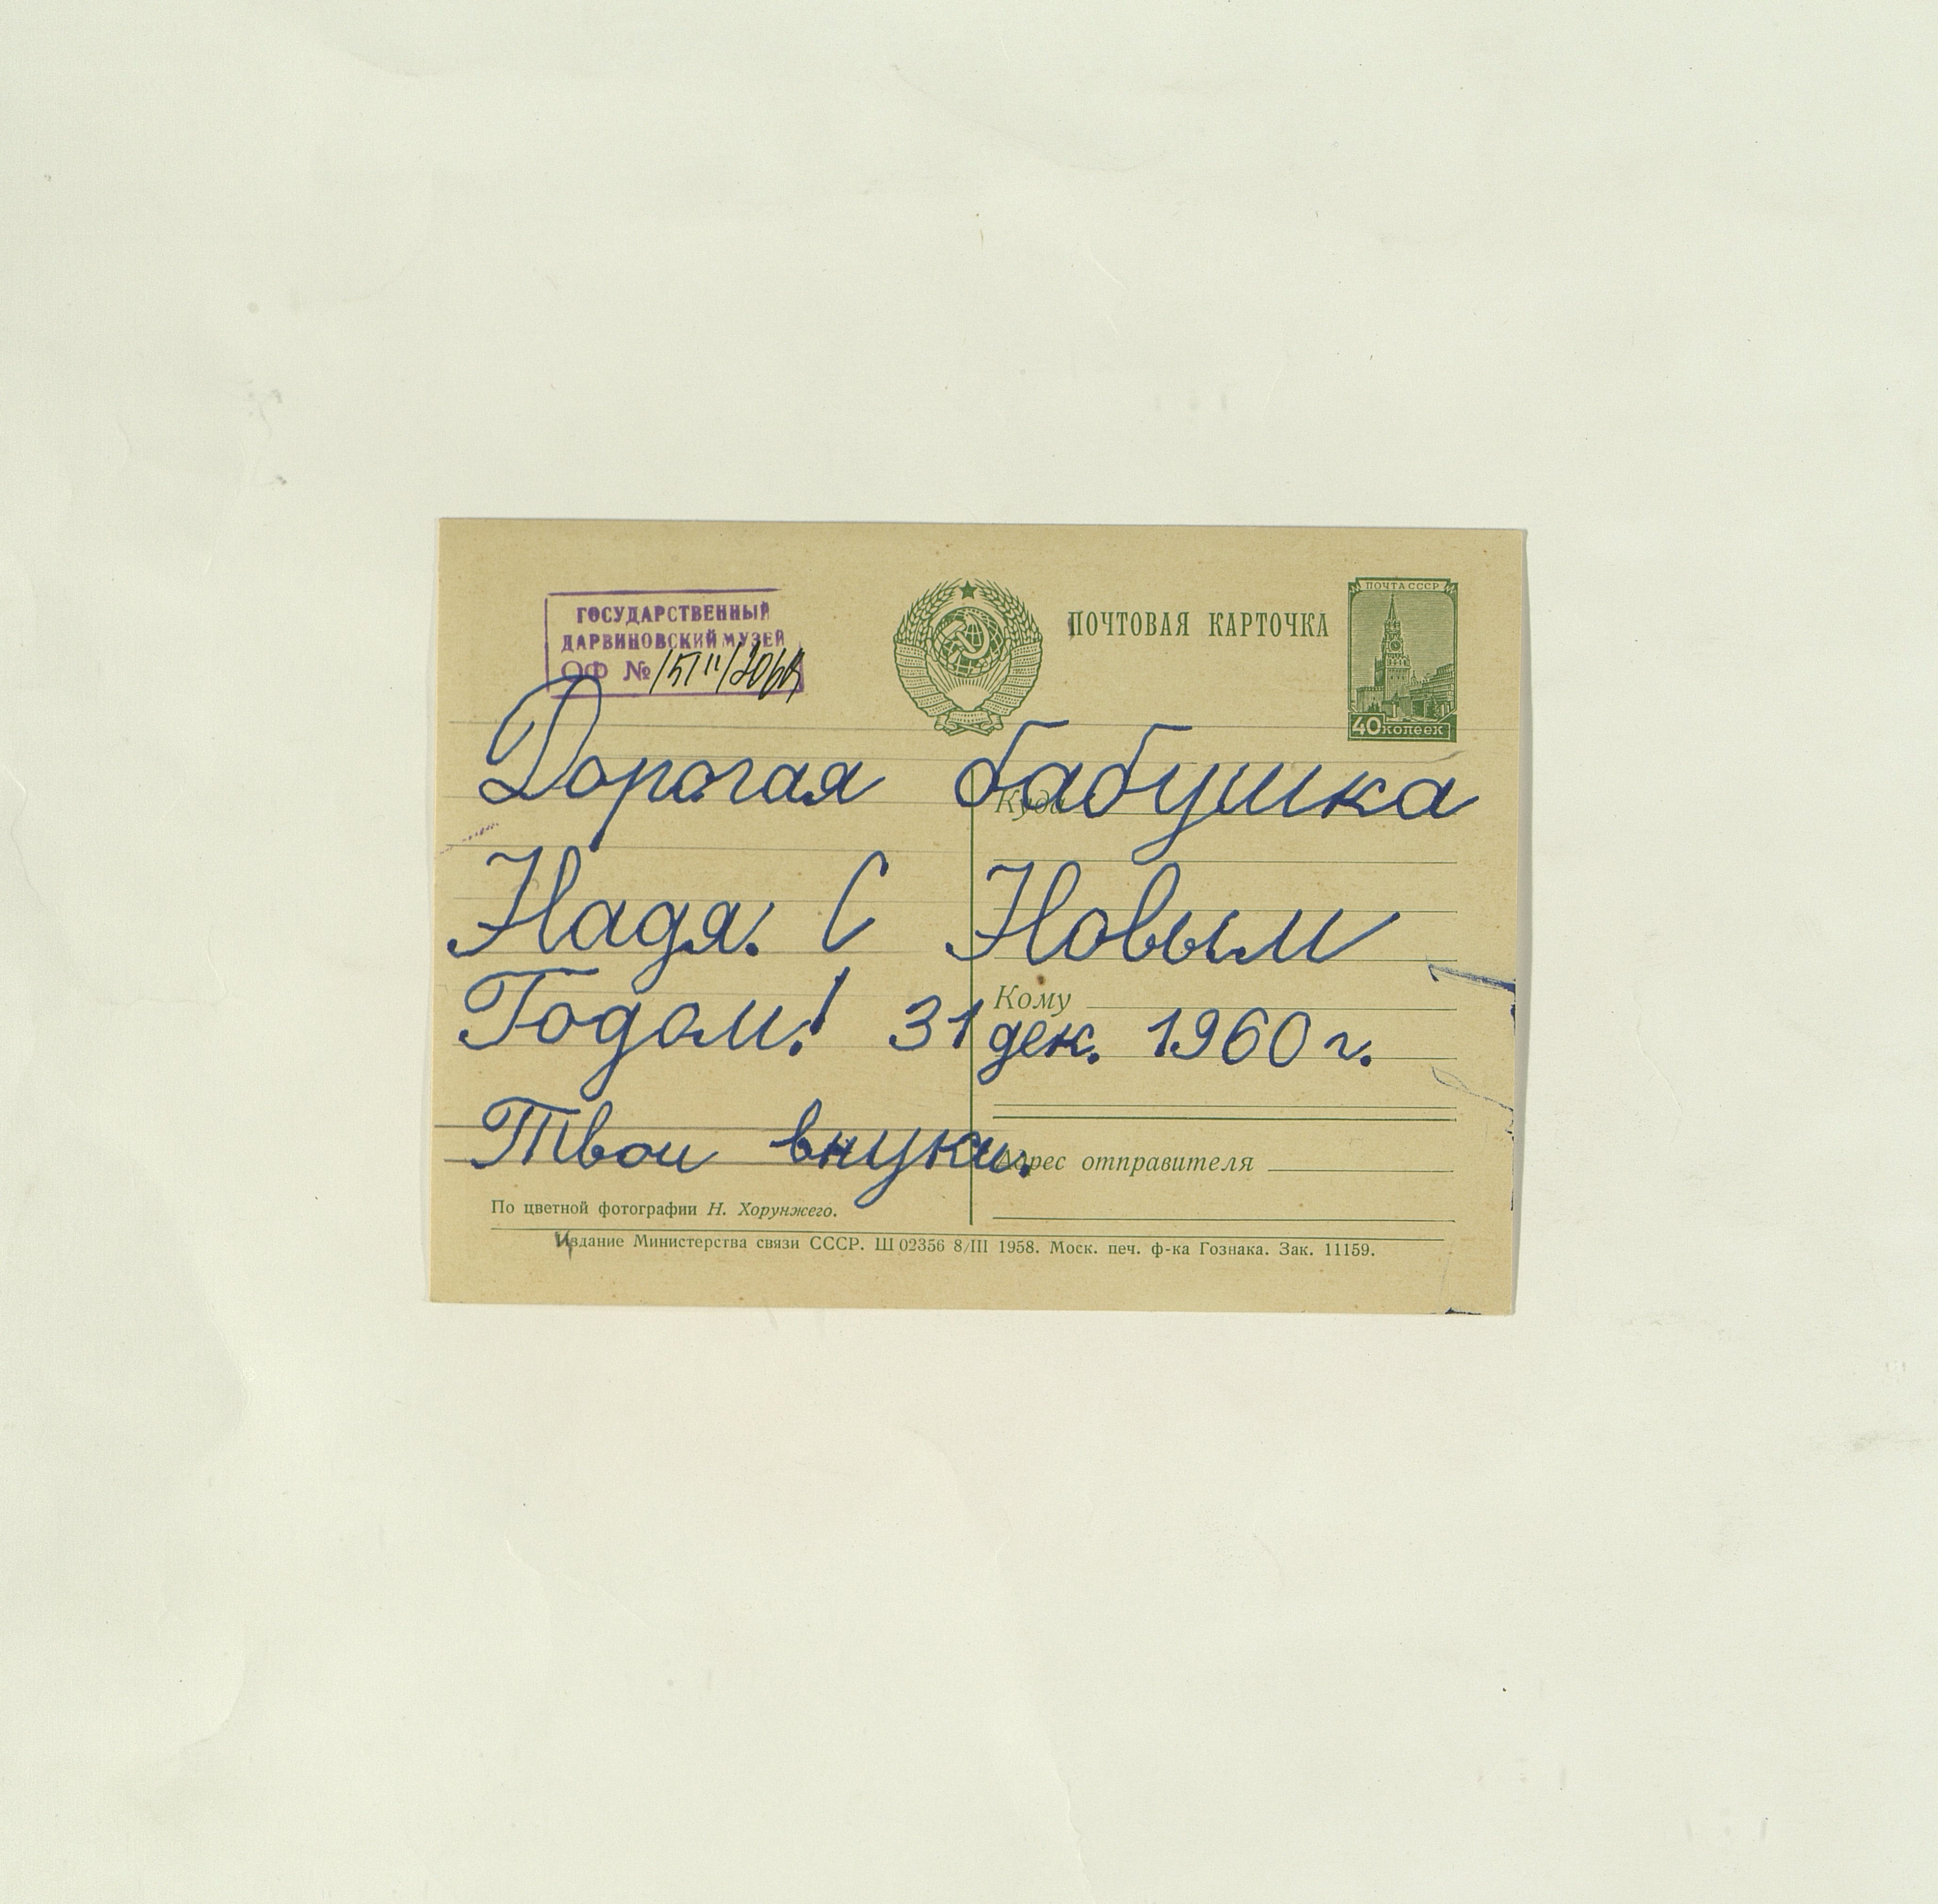 ГОСУДАРСТВЕННЫЙ
ДАРВИНОВСКИЙ МУЗЕЙ
ОФ №
ПОЧТОВАЯ КАРТОЧКА
ПОЧТА СССР
40 копеек
Дорогая бабушка
Куда
Надя! С Новым
Кому
Годом! 31 дек. 1960 г.
Твои внуки.
Адрес отправителя
По цветной фотографии Н. Хорунжего.
Издание Министерства связи СССР. Ш 02356 8/III 1958. Моск. печ. ф-ка Гознака. Зак. 11159.